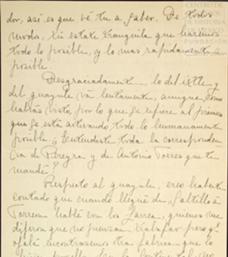 dor, asi es que vé tu a saber. De todos
modos, tu estate tranquila que haremos
todo lo posible, y lo mas rapidamente
posible.
Desgraciadamente, lo del ixtle y
del guayule va lentamente, aunque como
habrás visto, por lo que se refiere al primero
ya se está activando todo lo humanamente
posible. ¿Recibiste toda la correspondencia
de Pereyra y de Antonio Torres que te
mandé?
Respecto al guayule, creo haberte
contado que cuando llegué de Saltillo a
Torreon hablé con los Larrea, quienes me
dijeron que no podrian trabajar pero q'
ojalá encontrasemos otra fabrica que lo